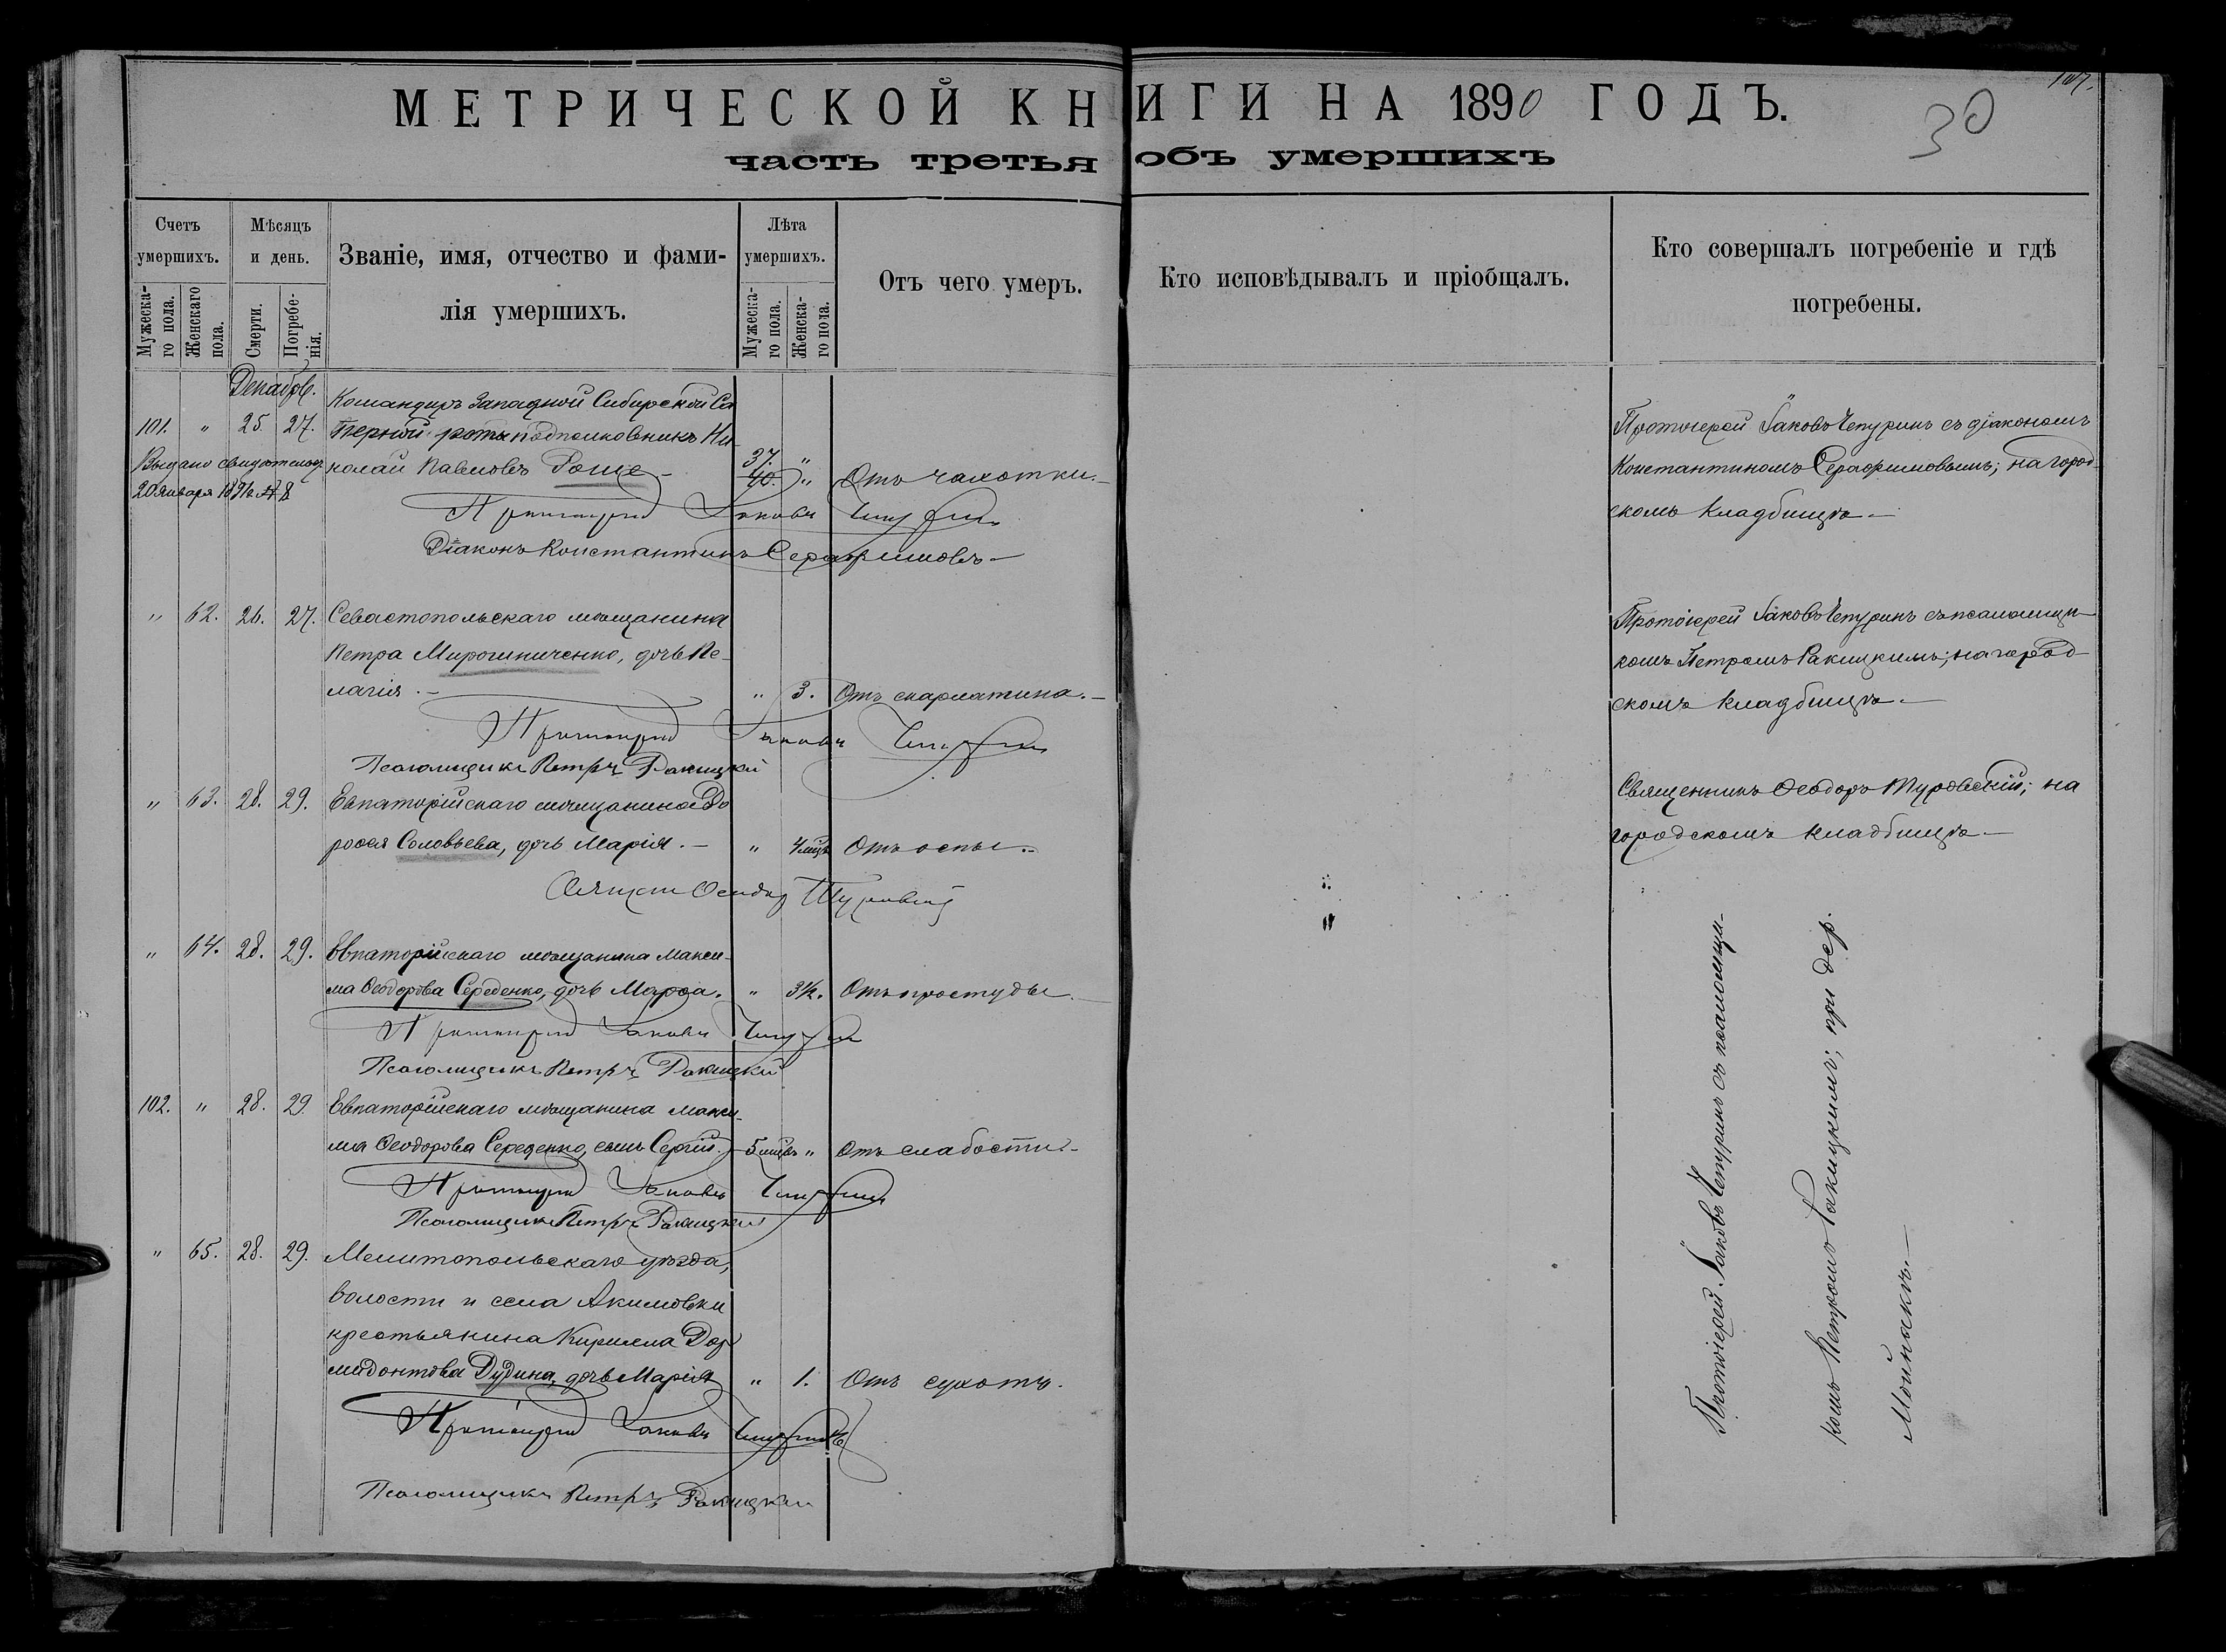 МЕТРИЧЕСКОЙ КНИГИ НА 1890 ГОДЪ.
30
часть третья объ умершихъ
Счетъ умершихъ.
Мужеска-го пола.
Женскаго пола.
Мѣсяцъ и день.
Смерти.
Погребе-нія.
Званіе, имя, отчество и фами-
лія умершихъ.
Лѣта умершихъ.
Мужеска-го пола.
Женска-го пола.
Отъ чего умеръ.
Кто исповѣдывалъ и пріобщалъ.
Кто совершалъ погребеніе и гдѣ
погребены.
Декабрь.
Командиръ Западной Сибирской Са
101. " 25. 27. перной роты подполковникъ Ни-
Выдано свидѣтельст.
20 января 1891 г. № 8
колай Павловъ Роще 37. " 40. " Отъ чахотки.
Протоіерей Іаковъ Чепуринъ
Діаконъ Константинъ Серафимовъ
Протоіерей Іаковъ Чепуринъ съ діакономъ
Константиномъ Серафимовымъ; на город-
скомъ кладбищѣ.
" 62. 26. 27. Севастопольскаго мѣщанина
Петра Мирошниченко, дочь Пе-
лагія. " 3. Отъ скарлатина.
Протоіерей Іаковъ Чепуринъ
Псаломщикъ Петръ Ракицкій
Протоіерей Іаковъ Чепуринъ съ псаломщи-
комъ Петромъ Ракицкимъ; на город-
скомъ кладбищѣ.
" 63. 28. 29. Евпаторійскаго мѣщанина До
роѳея Соловьева, дочь Марія. " 4 мцъ Отъ оспы.
Священ Ѳеодоръ Туровскій
Священникъ Ѳеодоръ Туровскій; на
городскомъ кладбищѣ.
" 64. 28. 29. Евпаторійскаго мѣщанина Макси-
ма Ѳеодорова Середенко, дочь Марѳа. " 3½. Отъ простуды.
Протоіерей Іаковъ Чепуринъ
Псаломщикъ Петръ Ракицкій
102. " 28. 29. Евпаторійскаго мѣщанина Макси-
ма Ѳеодорова Середенко, сынъ Сергій. 5 мцвъ " Отъ слабости.
Протоіерей Іаковъ Чепуринъ
Псаломщикъ Петръ Ракицкій
" 65. 28. 29. Мелитопольскаго уѣзда,
волости и села Акимовки
крестьянина Кирилла Дор
мидонтова Дудина, дочь Марія " 1. Отъ сухотъ.
Протоіерей Іаковъ Чепуринъ
Псаломщикъ Петръ Ракицкій
Протоіерей Іаковъ Чепуринъ съ псаломщи-
комъ Петромъ Ракицкимъ; при дер.
Мойнакъ.